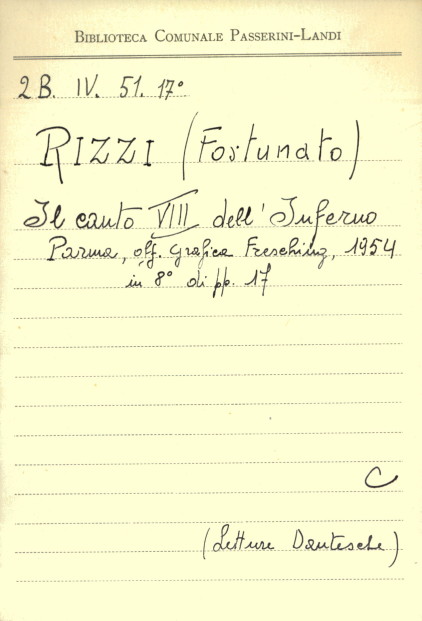 BIBLIOTECA COMUNALE PASSERINI-LANDI
2B. IV. 51. 17°
RIZZI (Fortunato)
Il canto VIII dell'Inferno
Parma, off. grafica Freching, 1954
in 8° di pp. 17
C
(Letture Dantesche)